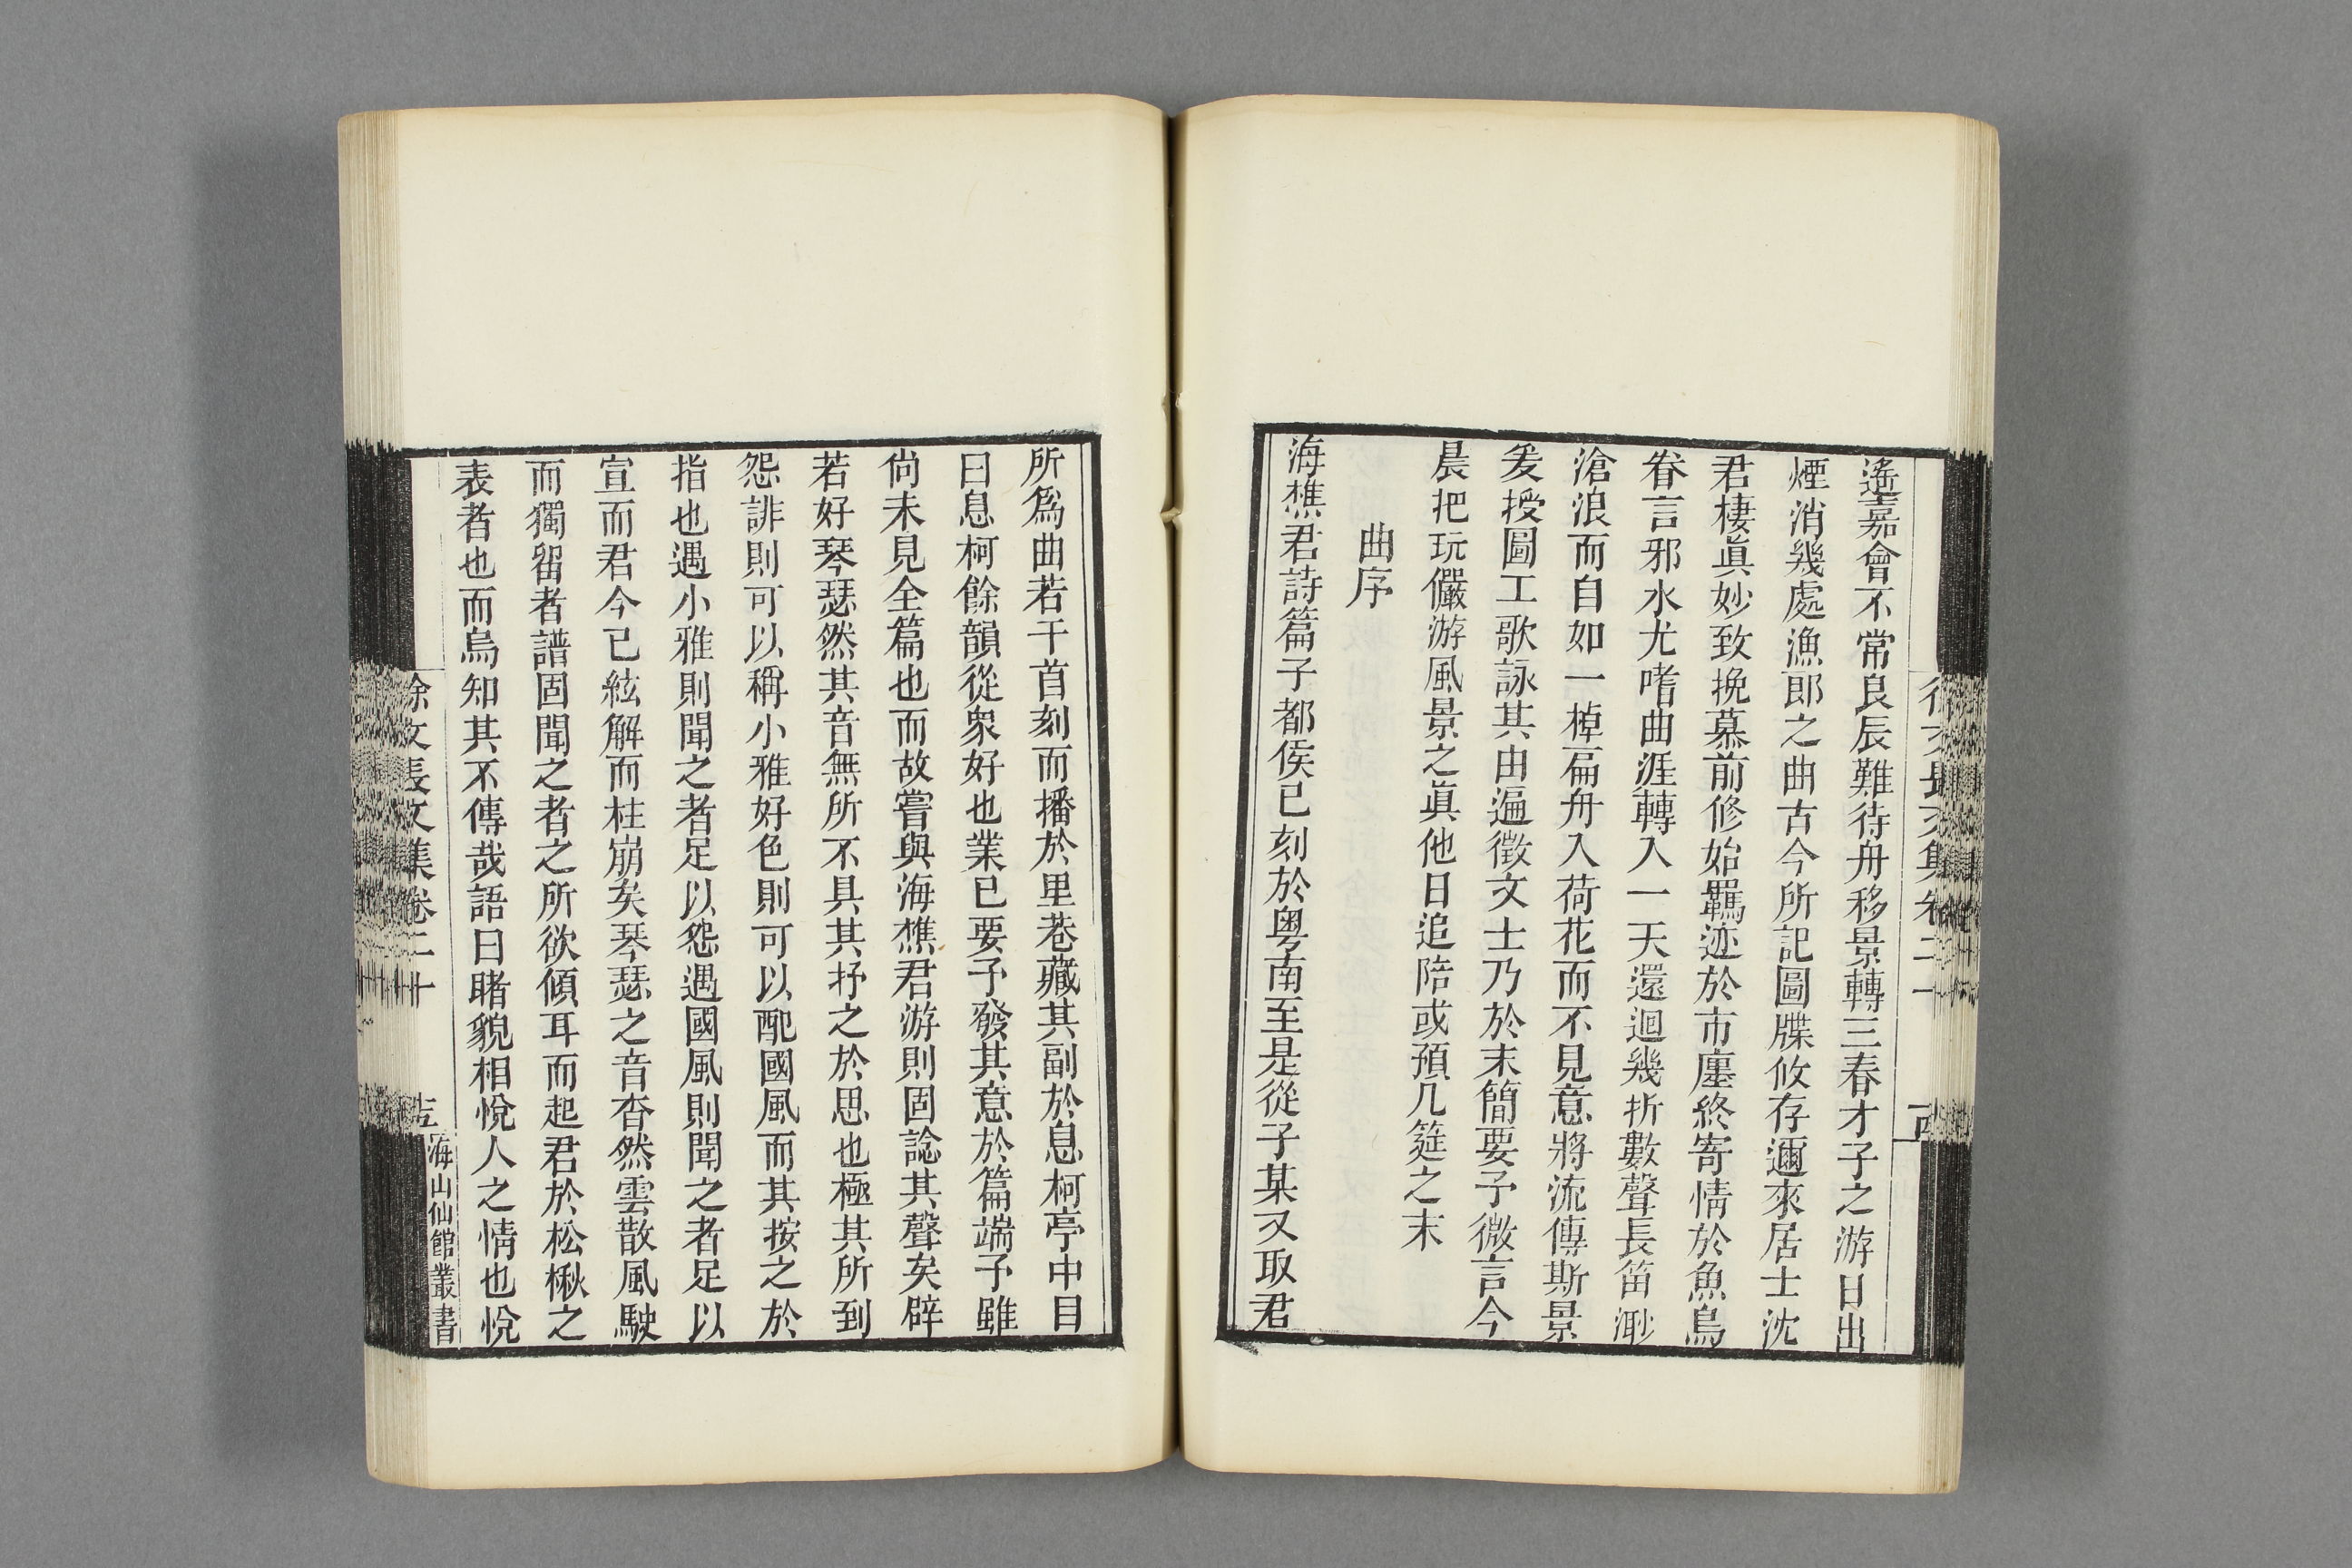 遙嘉會不常良辰難待舟移景轉三春才子之游日出
煙消幾處漁郎之曲古今所記圖牒攸存邇來居士沈
君棲眞妙致挽慕前修始羈迹於市廛終寄情於魚鳥
眷言邪水尤嗜曲涯轉入一天還迴幾折數聲長笛渺
滄浪而自如一棹扁舟入荷花而不見意將流傳斯景
爰授圖工歌詠其由遍徵文士乃於末簡要予微言今
晨把玩儼游風景之眞他日追陪或預几筵之末
曲序
海樵君詩篇子都侯已刻於粵南至是從子某又取君
所爲曲若干首刻而播於里巷藏其副於息柯亭中目
曰息柯餘韻從衆好也業已要予發其意於篇端予雖
尙未見全篇也而故嘗與海樵君游則固諗其聲矣辟
若好琴瑟然其音無所不具其抒之於思也極其所到
怨誹則可以稱小雅好色則可以配國風而其按之於
指也遇小雅則聞之者足以怨遇國風則聞之者足以
宣而君今已絃解而柱崩矣琴瑟之音杳然雲散風駛
而獨留者譜固聞之者之所欲傾耳而起君於松楸之
表者也而烏知其不傳哉語曰睹貌相悅人之情也悅
徐文長文集卷二十
海山仙館叢書